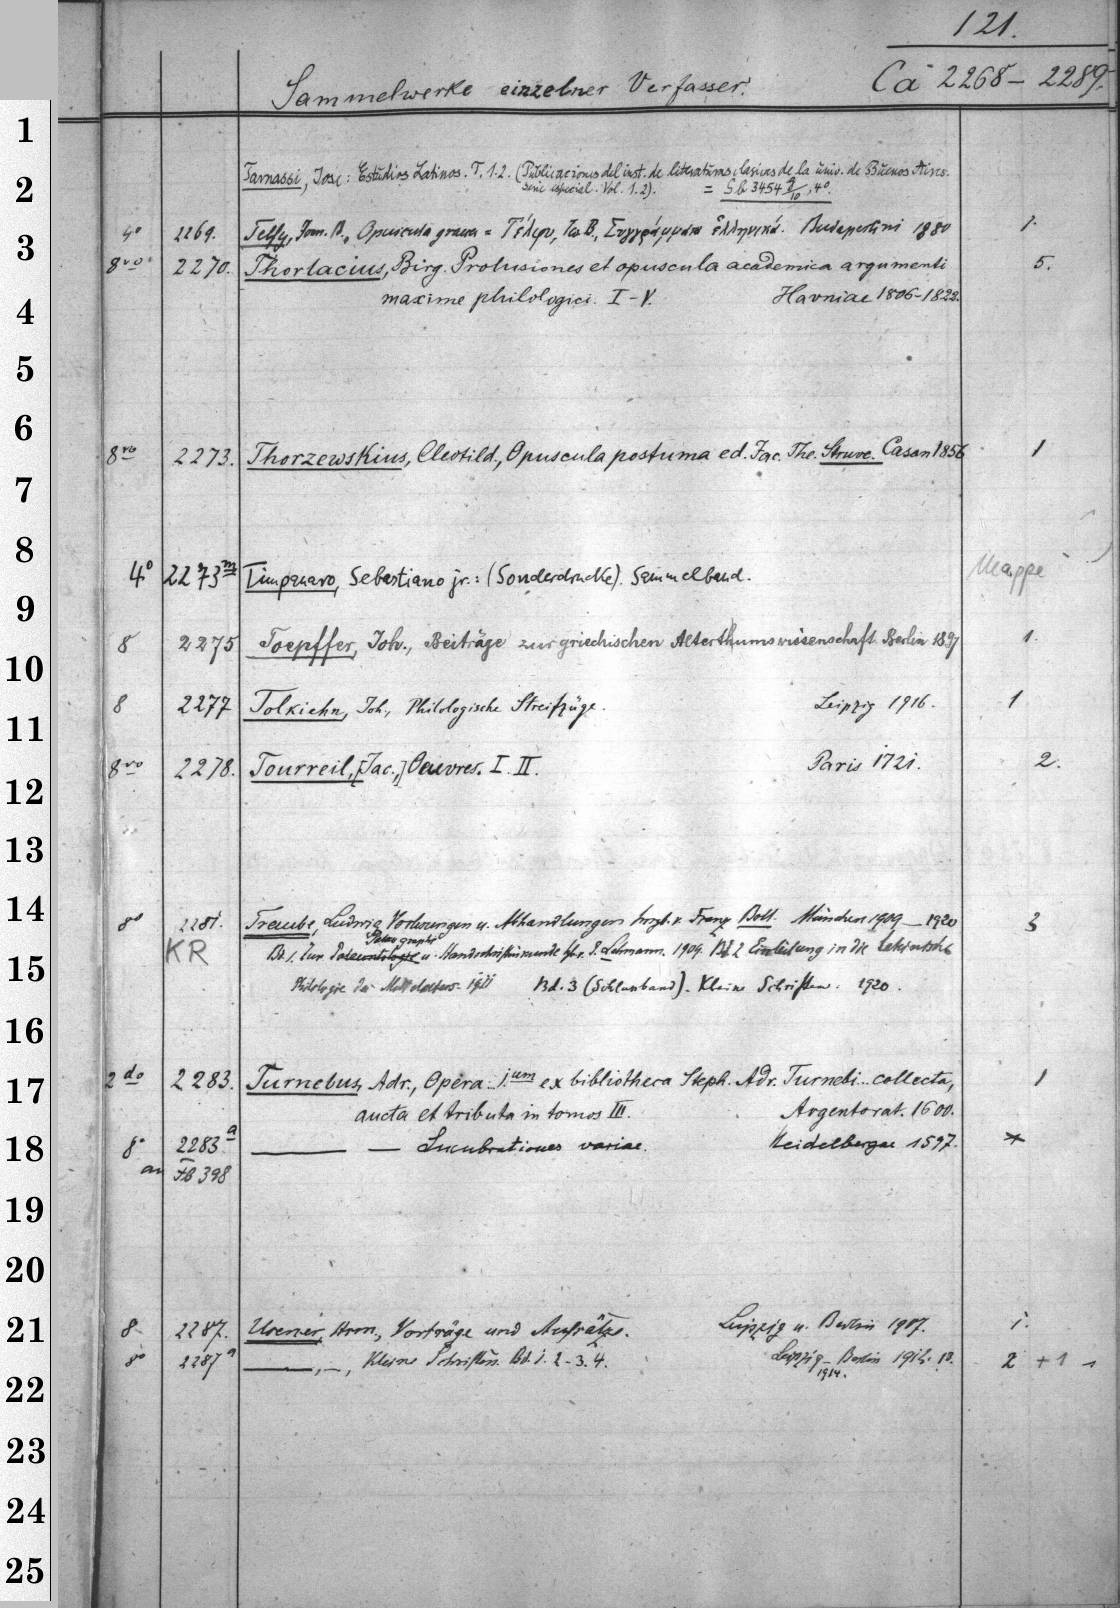 121.
Sammelwerke einzelner Verfasser. Ca 2268 – 2289.
1
2
3
4
5
6
7
8
9
10
11
12
13
14
15
16
17
18
19
20
21
22
23
24
25
Tarnassi, Jose: Estudios Latinos. T. 1-2. (Publicaciones del inst. de literaturas clasicas de la univ. de Buenos Aires.
Serie especial. Vol. 1.2). = 3454 , 4°.
4° 2269. Telfy, Joan. B., Opuscula graeca = Τέλφυ, Ἰω Β., Συγγράμματα ἑλληνικά. Budapestini 1880 1.
8vo 2270. Thorlacius, Birg. Prolusiones et opuscula academica argumenti 5.
maxime philologici. I – V. Havniae 1806-1822.
8vo 2273. Thorzewskius, Cleotild., Opuscula postuma ed. Jac. The. Struve. Casan 1856 1
4° 2273m Timpanaro, Sebastiano jr.: (Sonderdrucke). Sammelband. Mappe
8 2275 Toepffer, Joh., Beiträge zur griechischen Alterthumswissenschaft. Berlin 1897 1.
8 2277 Tolkiehn, Joh., Philologische Streifzüge. Leipzig 1916. 1
8vo 2278. Tourreil, [Jac.,] Oeuvres. I. II. Paris 1721. 2.
8° 2281. Traube, Ludwig Vorlesungen u. Abhandlungen hrgb. v. Franz Boll. München 1909 – 1920 3
KR Bd. 1. Zur Paläographie u. Handschriftenkunde hr. P. Lehmann. 1909. Bd 2 Einleitung in die lateinische
Philologie des Mittelalters. 1911 Bd. 3 (Schlussband). Kleine Schriften. 1920.
2do 2283. Turnebus, Adr., Opera. j.um ex bibliotheca Steph. Adr. Turnebi.. collecta, 1
aucta et tributa in tomos III. Argentorat. 1600.
8° 2283a ——— — Lucubrationes variae. Heidelbergae 1597. *
an Fb 398
8 2287. Usener, Herm., Vorträge und Aufsätze. Leipzig u. Berlin 1907. 1.
8° 2287a ———, —, Kleine Schriften. Bd. 1. 2 - 3. 4. Leipzig – Berlin 1912. 13. 2 + 1
1914.